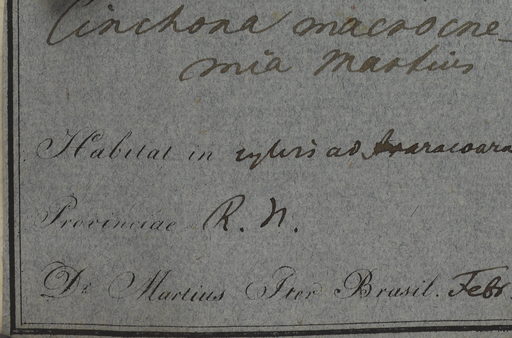 Cinchona macrocne-
mia Martius
Habitat in sylvis ad Araracoara
Provinciae R. N.
Dr Martius Iter Brasil. Febr.